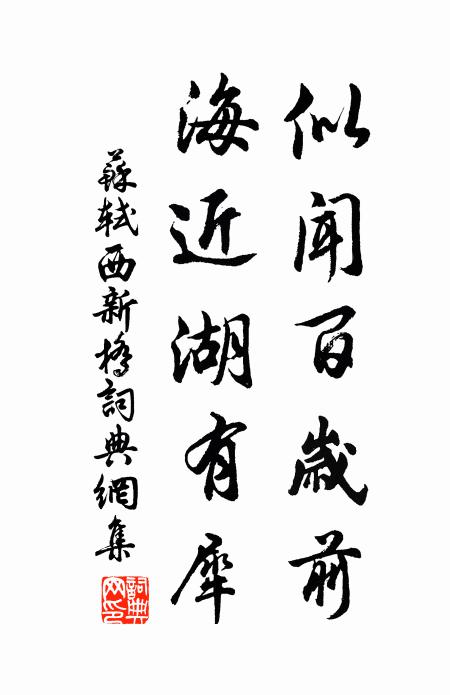 似聞百歲前
海近湖有犀
蘇軾西新橋詞典網集
詞典網印